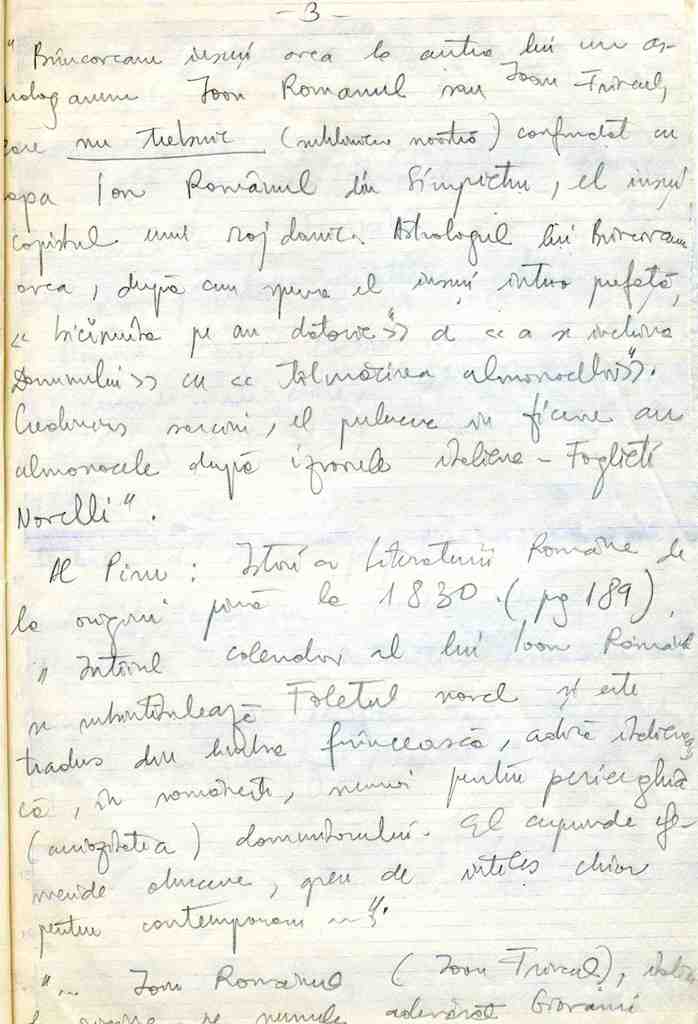 - 3 -
" Brîncoveanu însuși avea la curtea lui un as-
nume Ioan Romanul sau Ioan Frîncul,
care nu trebuie (sublinierea noastră) confundat cu
popa Ion Românul din Sînpietru, el însuși
copistul unui rojdanic. Astrologul lui Brîncoveanu
avea, după cum spune el însuși într-o prefață,
pe an datorie" >> de << a se închina
Domnului >> cu << tălmăcirea almanacelor" >>.
Credincios sarcinii, el prelucra în fiecare an
almanacele după izvoarele italiene - Foglietti
Novelli".
Al Piru : Istoria Literaturii Române de
la origini pînă la 1830. (pg 189)
" Întîiul calendar al lui Ioan Românul
se subintitulează Foletul novel și este
tradus din limba frîncească, adică italiene-
că, în românește, numai pentru perierghia
(curiozitatea) domnitorului. El cuprinde efe-
meride obscure, greu de înțeles chiar
pentru contemporani ...".
"... Ioan Românul (Ioan Frîncul),
pe numele adevărat Giovanni